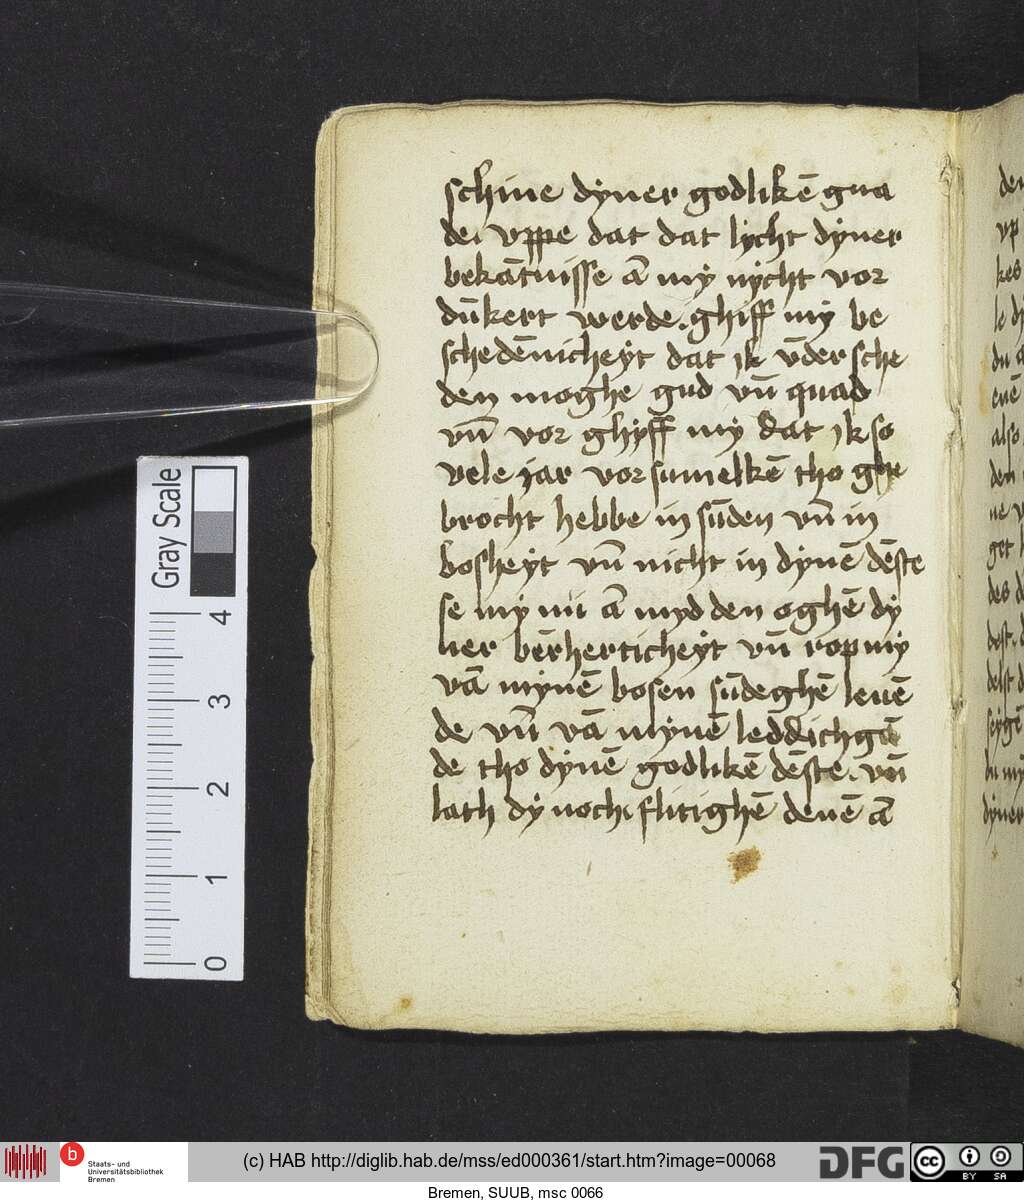 schine dyner godlikē gna
de. vppe dat dat lycht dyner
bekātnisse ā my nycht vor
dūkert werde. ghiff my be
schedēnicheyt dat ik vnder sche
den moghe gud vn̄ quad
vn̄ vor ghyff my dat ik so
vele jar vorsumelkē tho
brocht hebbe in sūden vn̄ in
bosheyt vn̄ nicht in dynē dēste
se my nu ā myd den oghē dy
ner bērherticheyt vn̄ rop my
vā mynē bosen sūdeghē leuē
de vn̄ vā mynē leddichgā
de tho dynē godlikē dēste. vn̄
lath dy noch flitighē denē ā
Gray Scale
4
3
2
1
0
Staats- und
Universitätsbibliothek
Bremen
(c) HAB http://diglib.hab.de/mss/ed000361/start.htm?image=00068
DFG
cc
BY SA
Bremen, SUUB, msc 0066